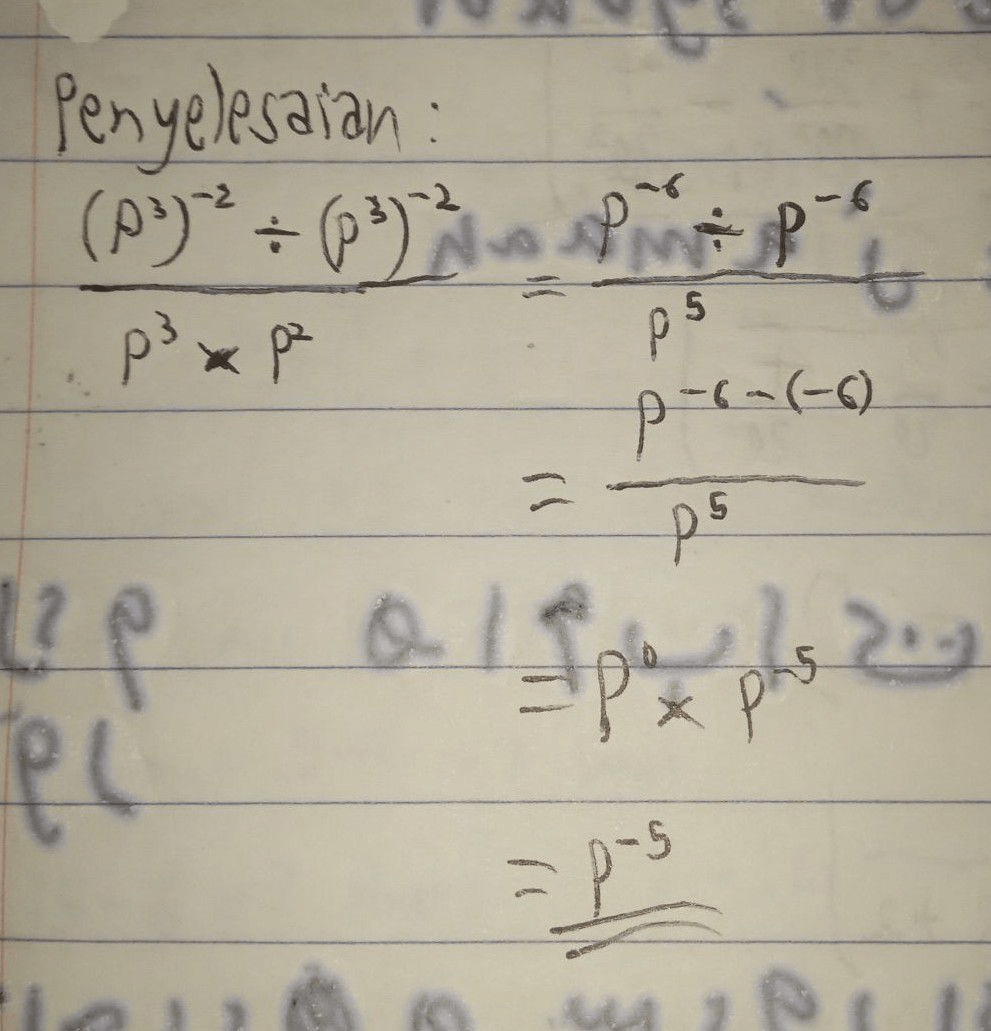 Penyelesaian :
(p³)⁻² ÷ (p³)⁻² / p³ × p² = p⁻⁶ ÷ p⁻⁶ / p⁵
= p⁻⁶⁻⁽⁻⁶⁾ / p⁵
= p⁰ × p⁻⁵
= p⁻⁵